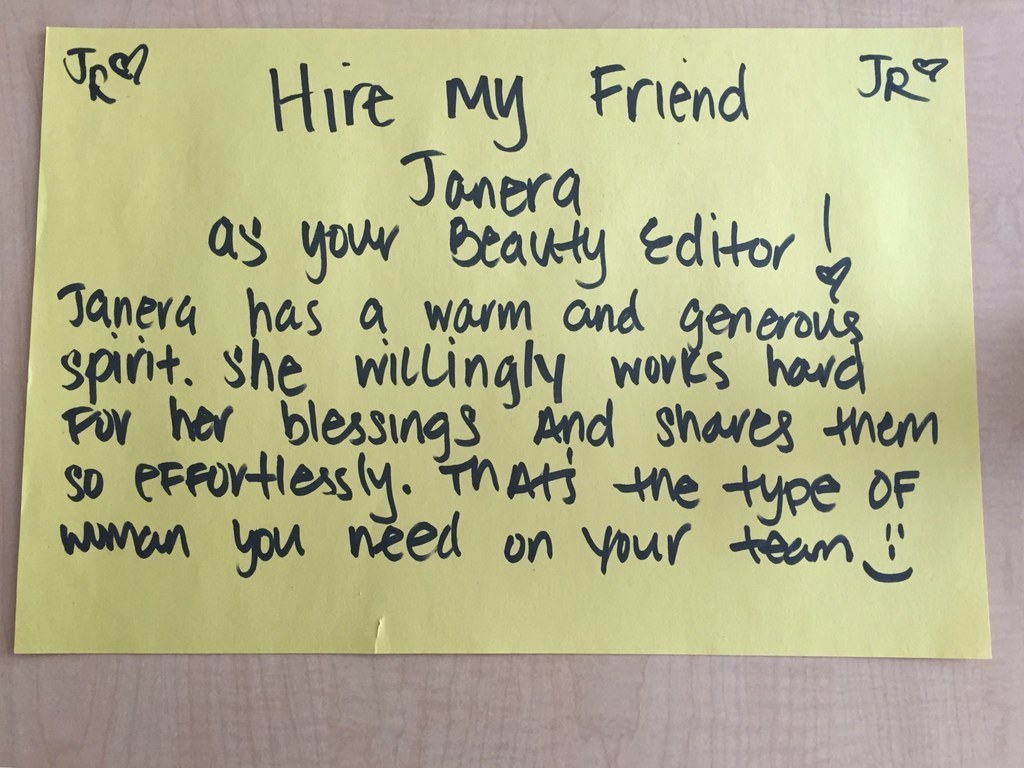 JR♡ JR♡
Hire My Friend
Janera
as your Beauty Editor!
Janera has a warm and generous
spirit. She willingly works hard
For her blessings And shares them
so EFFortlessly. ThAt's the type OF
woman you need on your team :)